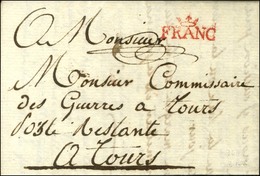 A Monsieur
FRANC
Monsieur Commissaire
des Guerres a Tours
Poste Restante
A Tours